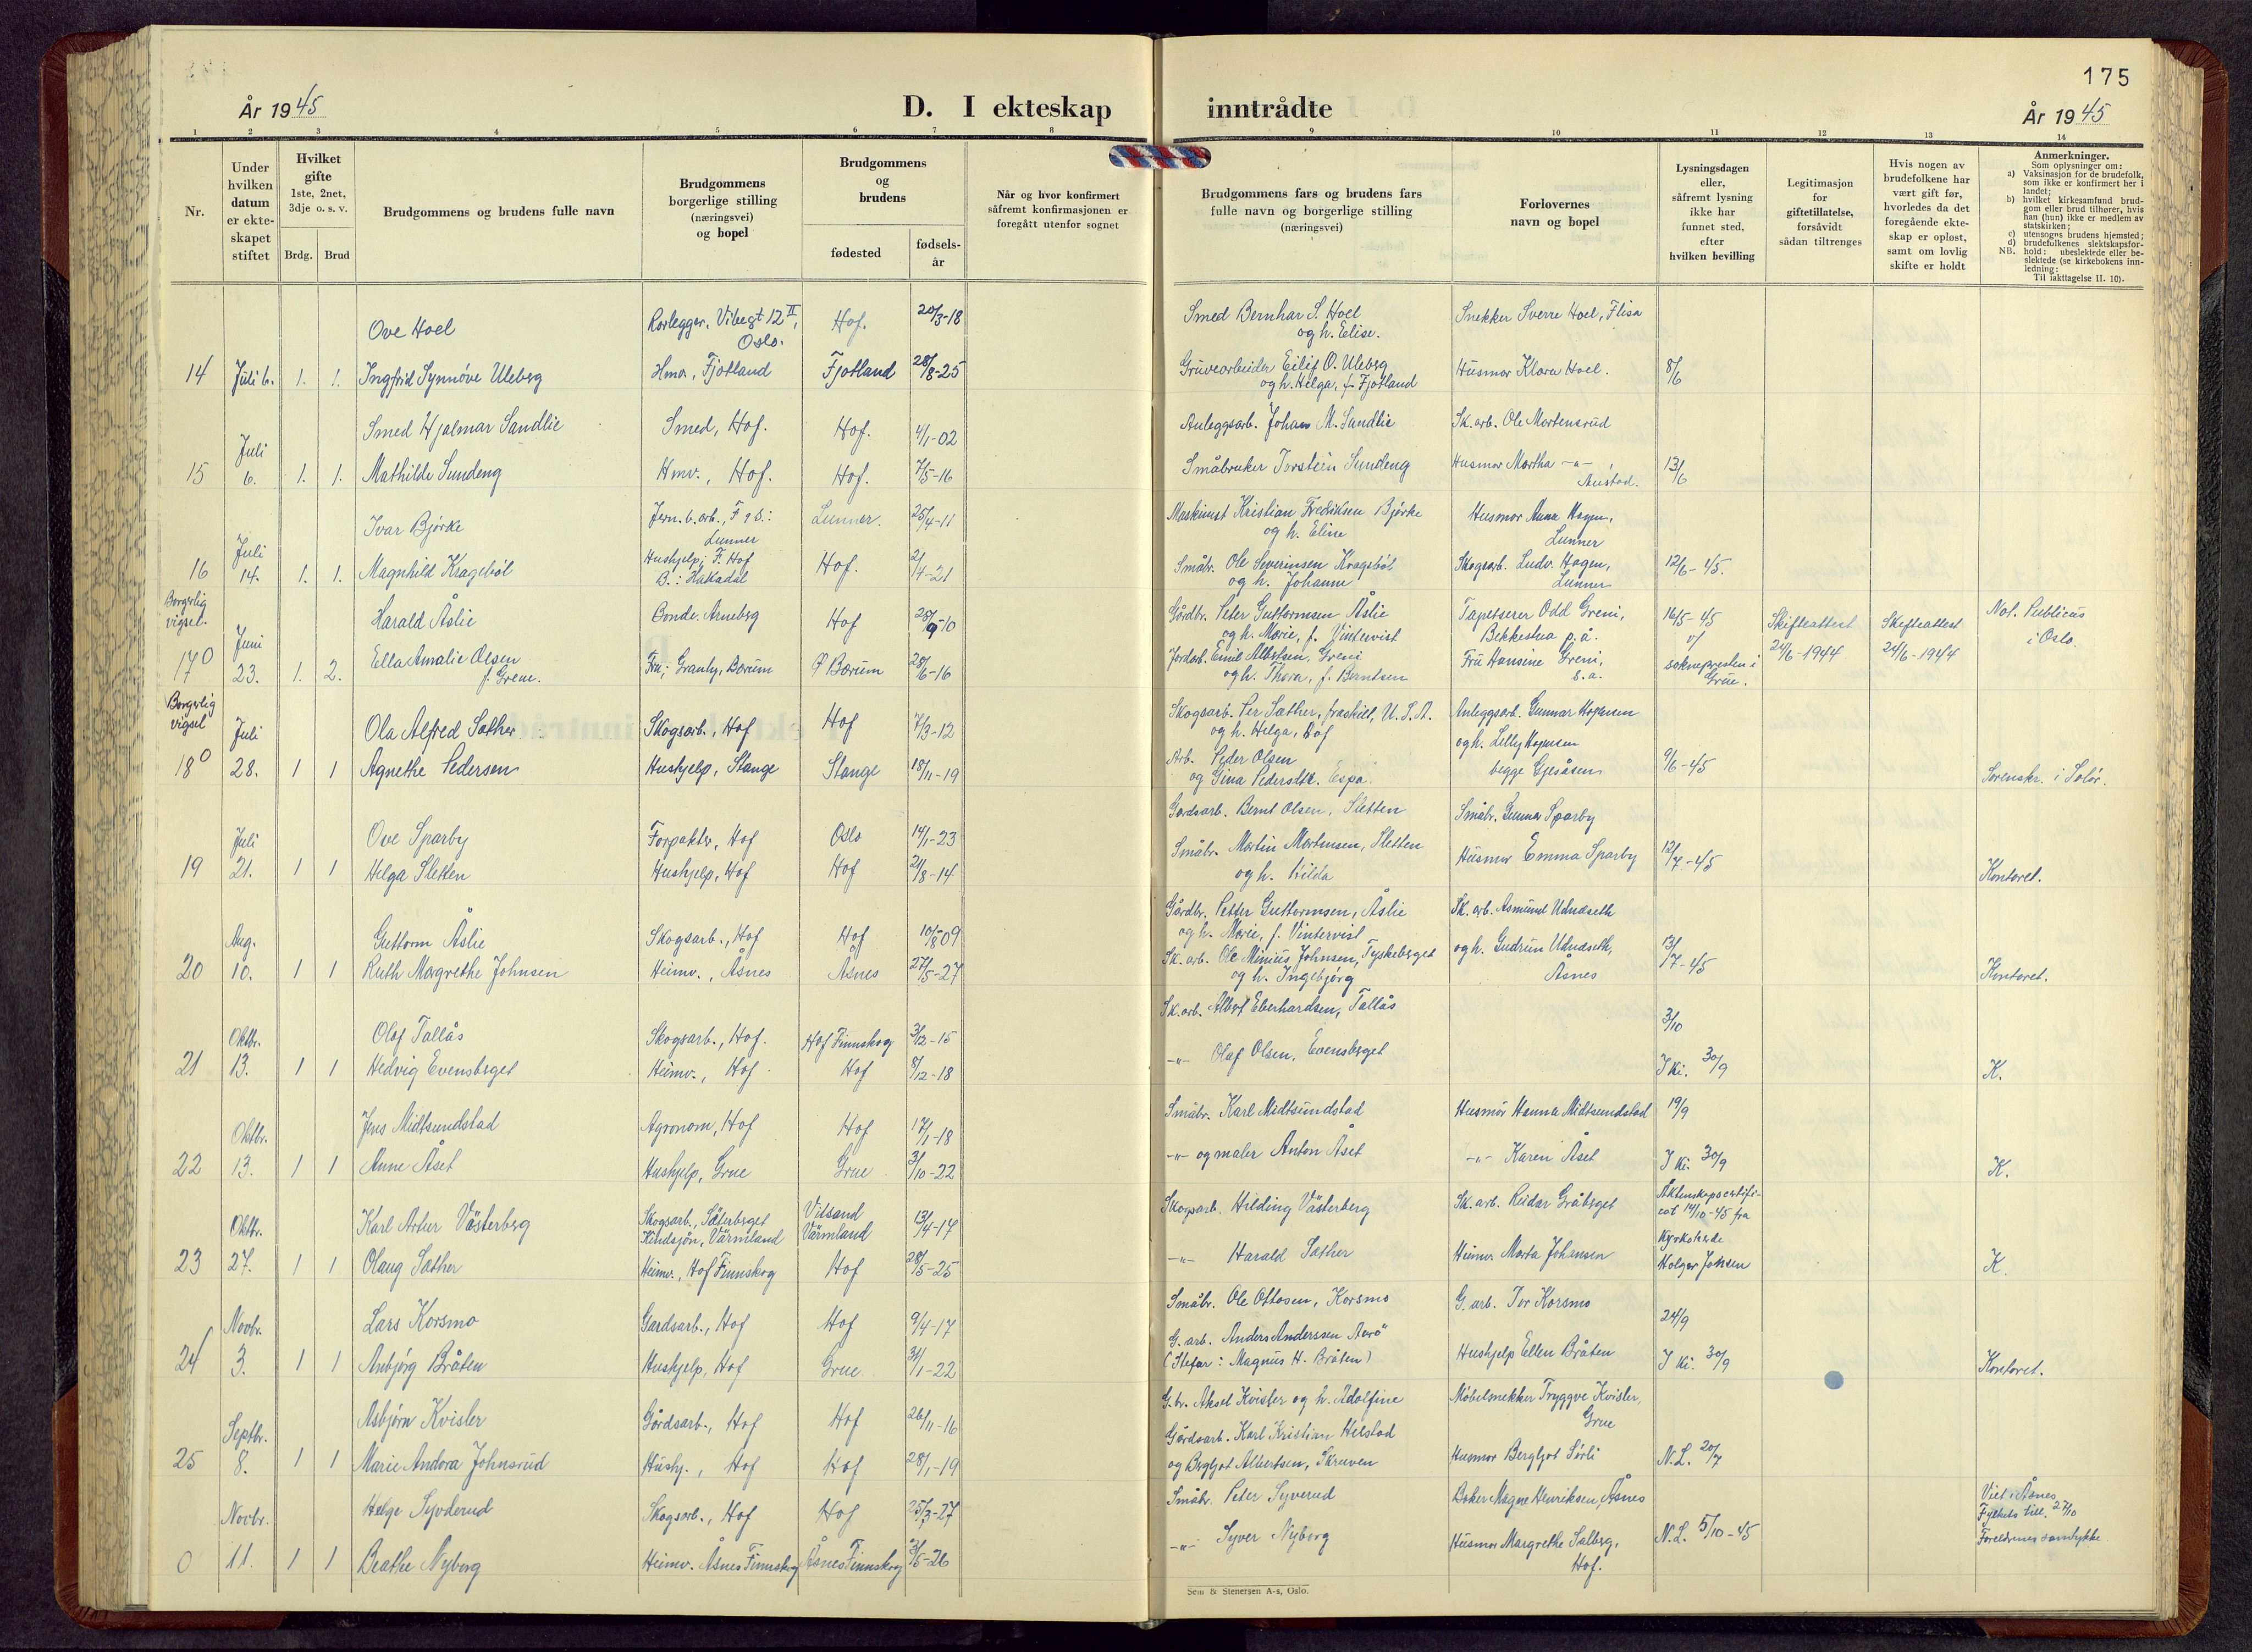 175
År 1945
D. I ekteskap inntrådte
År 1945
1 2 3 4 5 6 7 8 9 10 11 12 13 14
Nr.
Under hvilken datum er ekteskapet stiftet
Hvilket gifte 1ste, 2net, 3dje o. s. v.
Brdg. Brud
Brudgommens og brudens fulle navn
Brudgommens borgerlige stilling (næringsvei) og bopel
Brudgommens og brudens
fødested
fødselsår
Når og hvor konfirmert såfremt konfirmasjonen er foregått utenfor sognet
Brudgommens fars og brudens fars fulle navn og borgerlige stilling (næringsvei)
Forlovernes navn og bopel
Lysningsdagen eller, såfremt lysning ikke har funnet sted, efter hvilken bevilling
Legitimasjon for giftetillatelse, forsåvidt sådan tiltrenges
Hvis nogen av brudefolkene har vært gift før, hvorledes da det foregående ekteskap er opløst, samt om lovlig skifte er holdt
Anmerkninger.
Som oplysninger om:
a) Vaksinasjon for de brudefolk, som ikke er konfirmert her i landet;
b) hvilket kirkesamfund brudgom eller brud tilhører, hvis han (hun) ikke er medlem av statskirken;
c) utensogns brudens hjemsted;
d) brudefolkenes slektskapsforhold: ubeslektede eller beslektede (se kirkebokens innledning:
NB. Til iakttagelse II. 10).
Ove Hoel Rørlegger, Vibegt 12 II, Oslo. Hof. 20/3-18 Smed Bernhar S. Hoel og h. Elise. Snekker Sverre Hoel, Flisa
14 Juli 6. 1. 1. Ingfrid Synnøve Uleberg Hmv., Fjotland Fjotland 28/8-25 Gruvearbeider Eilif O. Uleberg og h. Helga, f. Fjotland Husmor Klara Hoel. 8/6
Smed Hjalmar Sandlie Smed, Hof. Hof. 4/1-02 Anleggsarb. Johan M. Sandlie Sk. arb. Ole Mortensrud
15 Juli 6. 1. 1. Mathilde Sundeng Hmv., Hof. Hof. 7/5-16 Småbruker Torstein Sundeng Husmor Martha -"-, Austad. 13/6
Ivar Bjørke Jern.b.arb., F og B: Lunner Lunner. 25/4-11 Maskinist Kristian Fredriksen Bjørke og h. Eline Husmor Anna Hagen, Lunner
16 Juli 14. 1. 1. Magnhild Kragebøl Hushjelp, F. Hof B.: Hakadal Hof. 2/4-21 Småbr. Ole Severinsen Kragsbøl og h. Johanne Skogsarb. Ludv. Hagen, Lunner 12/6-45.
Borgerlig vigsel.
Harald Åslie Bonde. Arneberg Hof 25/9-10 Gårdbr. Peter Guttormsen Åslie og h. Marie, f. Vintervist Tapetserer Odd Greni, Bekkestua p.å. 16/5-45 v/ sokneprester i Grue. Skifteattest 24/6-1944 Skifteattest 24/6-1944 Not. Publicus i Oslo.
17 0 Juni 23. 1. 2. Ella Amalie Olsen f. Grene. Fru; Granly, Bærum Ø Bærum 28/6-16 Jordarb. Emil Albertsen, Greni og h. Thora, f. Berntsen Fru Hansine Greni, s.a.
Borgerlig vigsel
Ola Alfred Sæther Skogsarb., Hof Hof 7/3-12 Skogsarb. Per Sæther, fraskilt, U.S.A. og h. Helga, Hof Anleggsarb. Gunnar Hopmen
18 0 Juli 28. 1 1 Agnethe Pedersen Hushjelp, Stange Stange 18/11-19 Arb. Peder Olsen og Gina Pedersdtr. Espa. og h. Lilly Hopmen begge Gjesåsen 9/6-45 Sorenskr. i Solør.
Ove Sparby Forpakter, Hof Oslo 14/1-23 Gardsarb. Bernt Olsen, Sletten Småbr. Gunnar Sparby
19 Juli 21. 1 1 Helga Sletten Hushjelp, Hof Hof 21/8-14 Småbr. Martin Mortensen, Sletten og h. Hilda Husmor Emma Sparby 12/7-45 Kontoret.
Guttorm Åslie Skogsarb., Hof Hof 10/8 09 Gårdbr. Petter Guttormsen, Åslie og h. Marie, f. Vintervist Sk. arb. Asmund Udnæseth
20 Aug. 10. 1 1 Ruth Margrethe Johnsen Heimv., Åsnes Åsnes 27/5-27 Sk. arb. Ole Minius Johnsen, Tyskeberget og h. Ingebjørg og h. Gudrun Udnæseth, Åsnes 13/7-45 Kontoret.
Olaf Tallås Skogsarb., Hof. Hof Finnskog 3/12-15 Sk. arb. Albert Eberhardsen, Tallås 3/10
21 Oktbr. 13. 1 1 Hedvig Evensberget Heimv., Hof Hof 8/12-18 -"- Olaf Olsen, Evensberget I ki. 30/9 K.
Jens Midtsundstad Agronom, Hof Hof 17/1-18 Småbr. Karl Midtsundstad Husmor Hanna Midtsundstad 19/9
22 Oktbr. 13. 1 1 Anne Åset Hushjelp, Grue Grue 3/10-22 -"- og maler Anton Åset -"- Karen Åset I ki. 30/9 K.
Karl Artur Västerberg Skogsarb., Säterberget Kindsjön, Värmland Vitsand Värmland 13/4-17 Skogsarb. Hilding Västerberg Sk. arb. Reidar Gråberget Äktenskapscertificat 14/10-45 fra Kyrkoherde Holger Johsen
23 Oktbr. 27. 1 1 Olaug Sæther Heimv., Hof Finnskog Hof 28/5-25 -"- Harald Sæther Heimv. Marta Johansen K.
Lars Korsmo Gardsarb., Hof Hof 9/4-17 Småbr. Ole Ottosen, Korsmo G. arb. Tor Korsmo 24/9
24 Novbr. 3. 1 1 Anbjørg Bråten Hushjelp, Hof Grue 31/1-22 G. arb. Anders Anderssen Aarö (Stefar: Magnus H. Bråten) Hushjelp Ellen Bråten I ki. 30/9 Kontoret.
Asbjørn Kvisler Gårdsarb., Hof Hof 26/11-16 G.br. Aksel Kvisler og h. Adolfine Møbelsnekker Tryggve Kvisler, Grue
25 Septbr. 8. 1 1 Marie Andora Johnsrud Hushj., Hof Hof 28/1-19 Gårdsarb. Karl Kristian Helstad og Bergljot Albertsen, Skruven Husmor Bergljot Sørli N.L. 20/7
Helge Syvderud Skogsarb., Hof Hof 25/3-27 Småbr. Peter Syverud Baker Magne Henriksen, Åsnes Viet i Åsnes Fylkets till. 27/10
0 Novbr. 11. 1 1 Beathe Nyborg Heimv. Åsnes Finnskog Åsnes Finnskog 3/5-26 -"- Syver Nyborg Husmor Margrethe Salberg, Hof. N.L. 5/10-45 Foreldrenes samtykke
Sem & Stenersen A-s, Oslo.